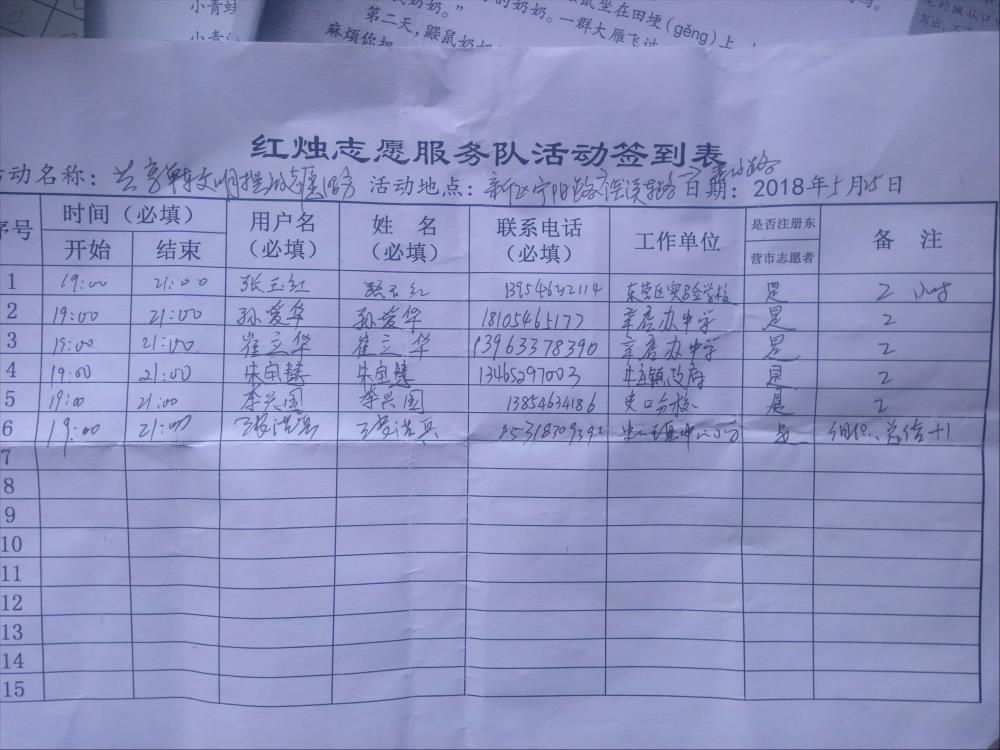 小青蛙
小青
奶奶。”
的奶奶。一群大雁飞过
鼠坐在田埂(gěng)上
第二天，鼹鼠奶奶
麻烦你把
红烛志愿服务队活动签到表
动名称：共享单车文明提升志愿服务 活动地点：新区宁阳路 日期：2018年5月25日
序号 时间（必填） 用户名（必填） 姓 名（必填） 联系电话（必填） 工作单位 是否注册东营市志愿者 备 注
开始 结束
1 19:00 21:00 张玉红 张玉红 13954622114 东营区实验学校 是 2小时
2 19:00 21:00 孙爱华 孙爱华 18105465177 辛店办中学 是 2
3 19:00 21:00 崔立华 崔立华 13963378390 辛店办中学 是 2
4 19:00 21:00 朱宝慧 朱宝慧 13465297003 牛庄镇政府 是 2
5 19:00 21:00 李兴国 李兴国 13854634186 史口分校 是 2
6 19:00 21:00 是 组织、总结+1
7
8
9
10
11
12
13
14
15